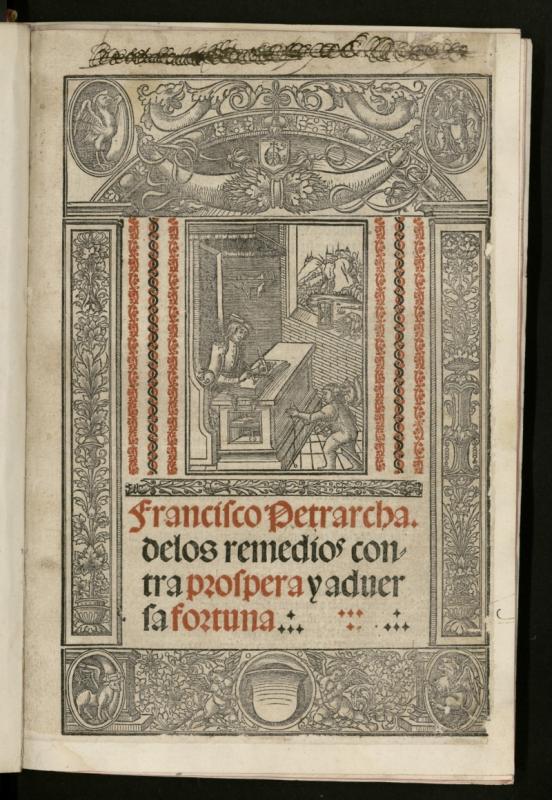 Francisco Petrarcha.
delos remedios con-
tra prospera y aduer
sa fortuna